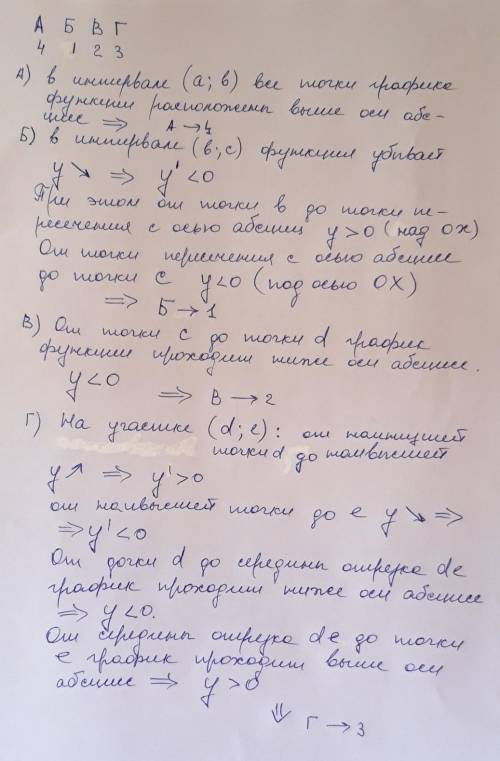 А Б В Г
4 1 2 3
А) в интервале (a; b) все точки графика
функции расположены выше оси абс-
цисс ⇒ А → 4
Б) в интервале (b; c) функция убывает
y ↘ ⇒ y' < 0
При этом от точки b до точки пе-
ресечения с осью абсцисс y > 0 (над OX)
От точки пересечения с осью абсцисс
до точки c y < 0 (под осью OX)
⇒ Б → 1
В) От точки c до точки d график
функции проходит ниже оси абсцисс.
y < 0 ⇒ В → 2
Г) На участке (d; e): от наинизшей
точки d до наивысшей
y ↗ ⇒ y' > 0
от наивысшей точки до e y ↘ ⇒
⇒ y' < 0
От точки d до середины отрезка de
график проходит ниже оси абсцисс
⇒ y < 0.
От середины отрезка de до точки
e график проходит выше оси
абсцисс ⇒ y > 0
⇓ Г → 3